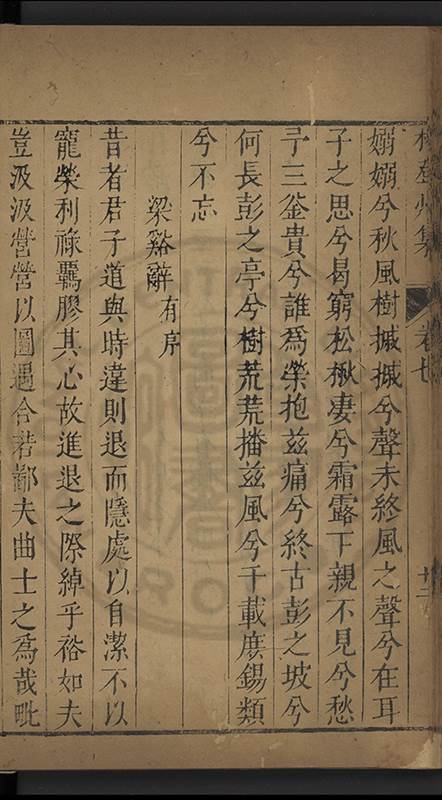 集 卷七 十二
嫋嫋兮秋風樹摵摵兮聲未終風之聲兮在耳
子之思兮曷窮松楸凄兮霜露下親不見兮愁
予三釜貴兮誰爲榮抱兹痛兮終古彭之坡兮
何長彭之亭兮樹荒荒播兹風兮千載庶錫類
兮不忘
梁谿辭有序
昔者君子道與時違則退而隱處以自潔不以
寵榮利祿羈膠其心故進退之際綽乎裕如夫
豈汲汲營營以圖遇合若鄙夫曲士之爲哉毗